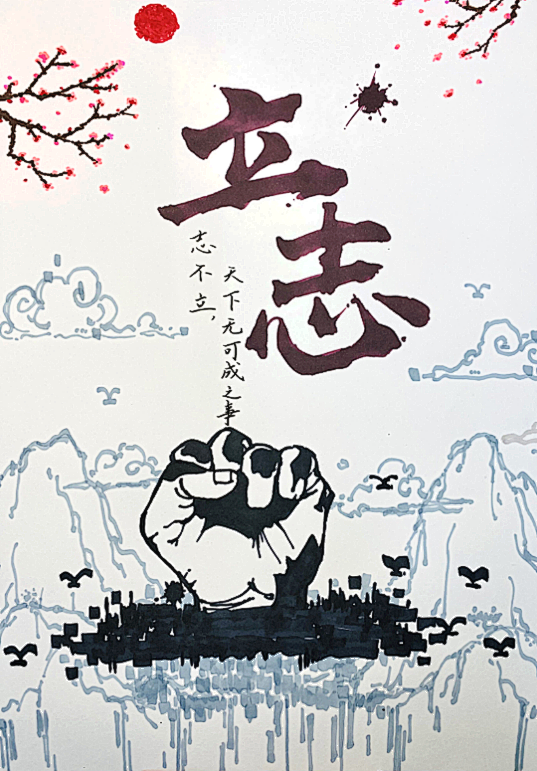 立志
志不立，
天下无可成之事